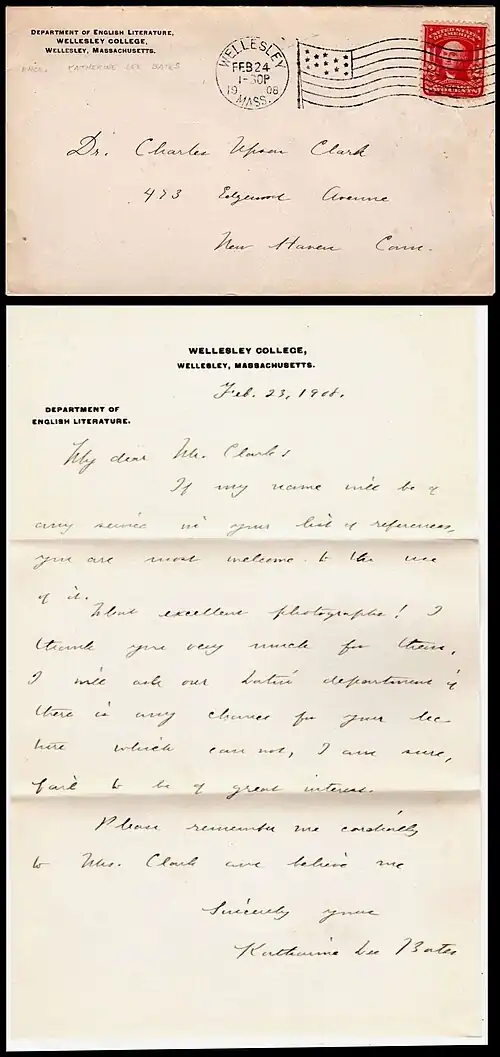 DEPARTMENT OF ENGLISH LITERATURE,
WELLESLEY COLLEGE,
WELLESLEY, MASSACHUSETTS.
KATHERINE LEE BATES
WELLESLEY
FEB 24
1-30P
1908
MASS.
UNITED STATES
OF AMERICA
Dr. Charles Upson Clark
473 Edgewood Avenue
New Haven Conn.
WELLESLEY COLLEGE,
WELLESLEY, MASSACHUSETTS.
Feb. 23, 1908.
DEPARTMENT OF
ENGLISH LITERATURE.
My dear Mr. Clark:
If my name will be of
any service in your list of references,
you are most welcome to the use
of it.
What excellent photographs! I
thank you very much for them.
I will ask our Latin department if
there is any chance for your lec
ture which can not, I am sure,
fail to be of great interest.
Please remember me cordially
to Mrs. Clark and believe me
Sincerely yours
Katharine Lee Bates